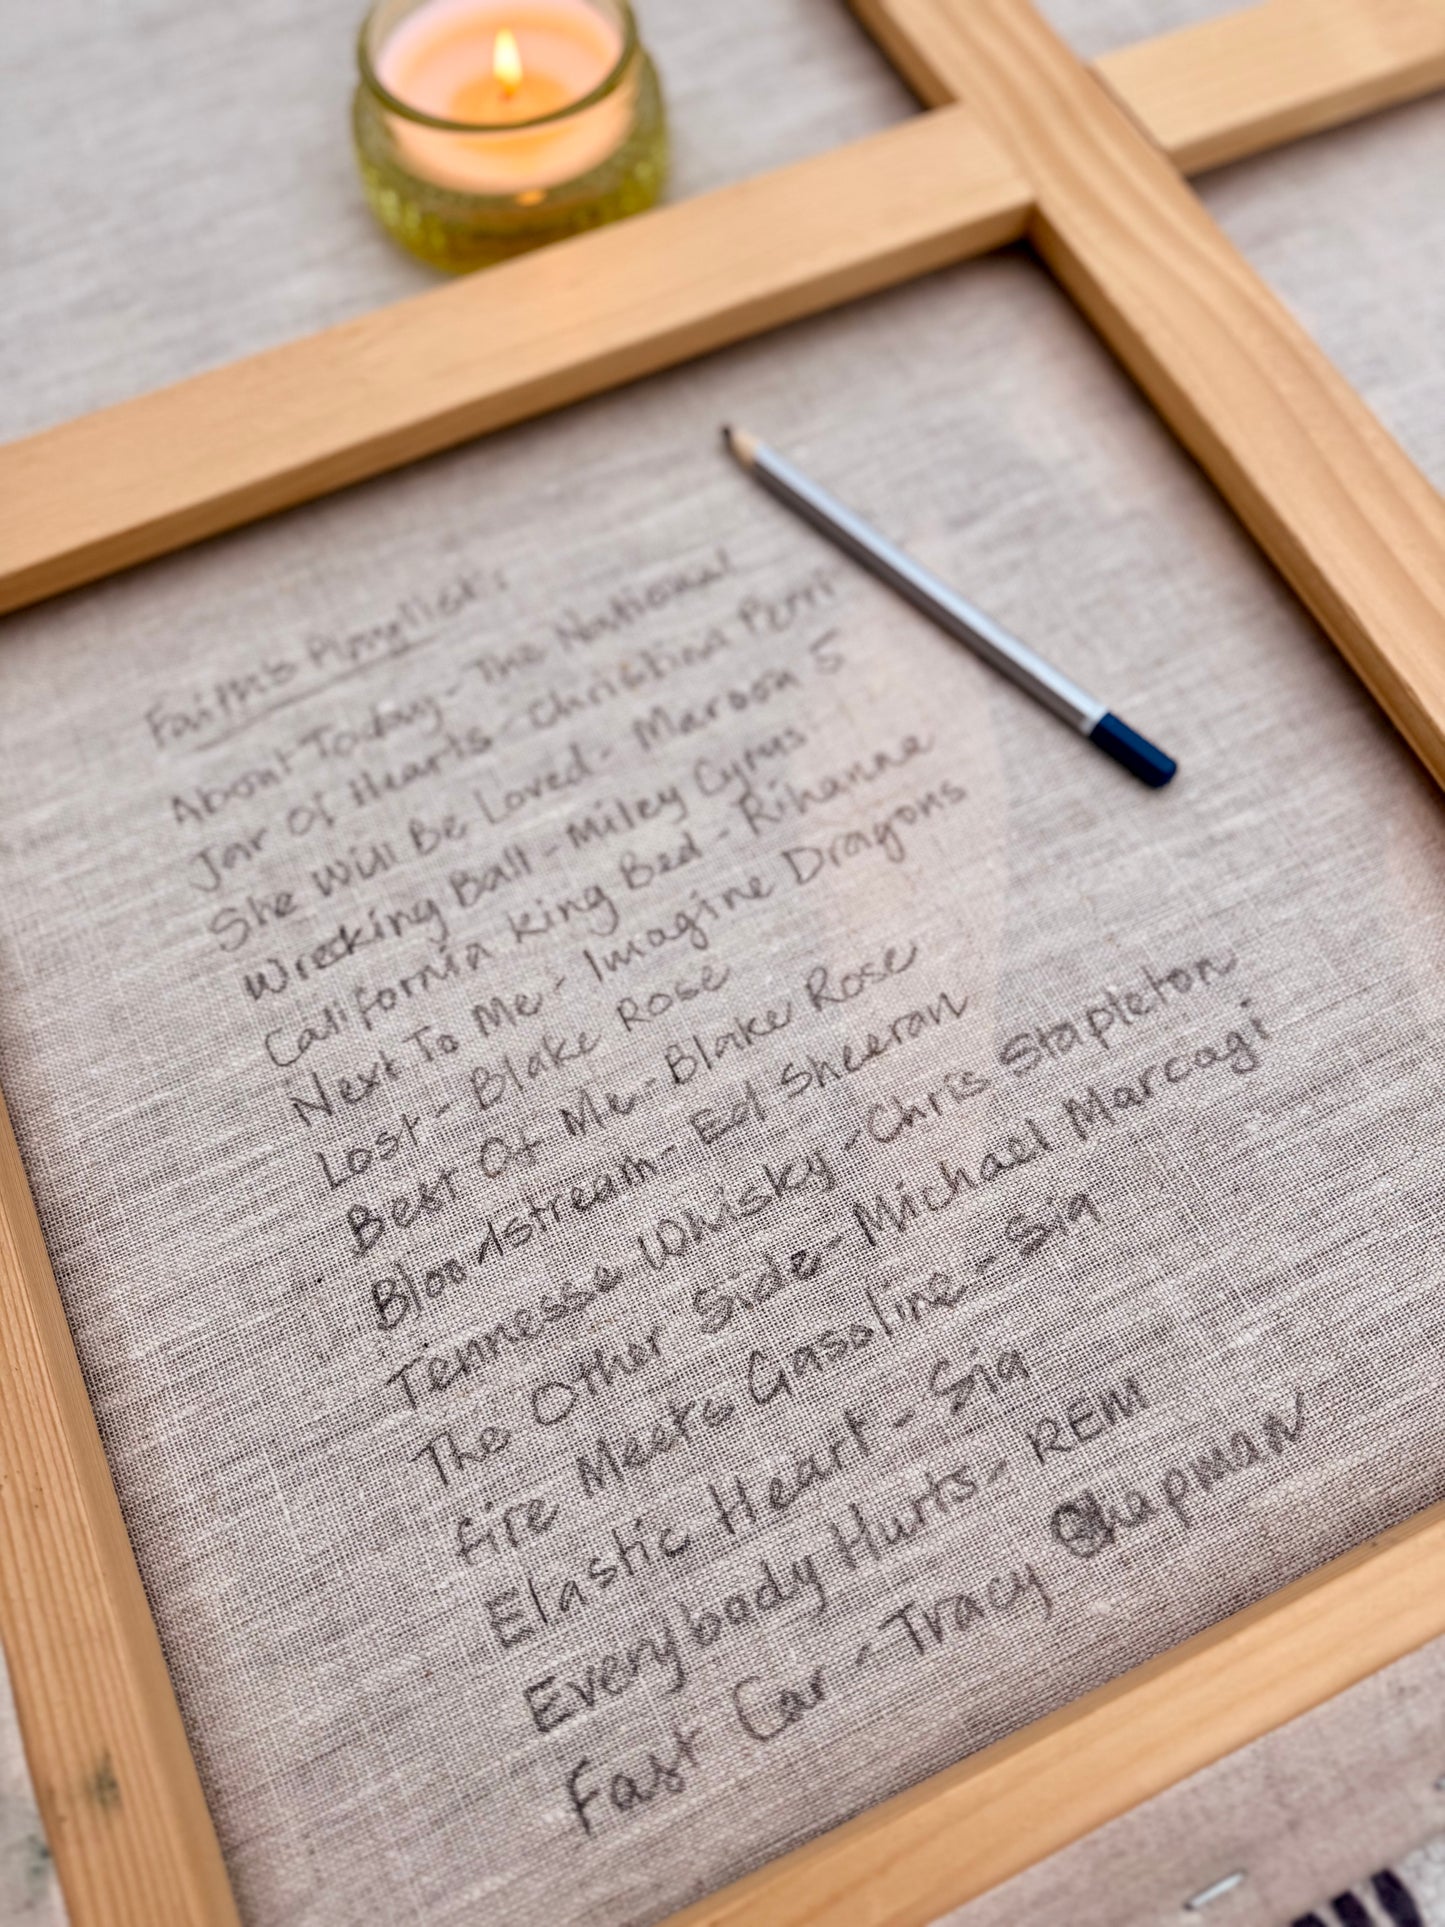 Faith's Playlist:
About Today - The National
Jar Of Hearts - Christina Perri
She Will Be Loved - Maroon 5
Wrecking Ball - Miley Cyrus
California King Bed - Rihanna
Next To Me - Imagine Dragons
Lost - Blake Rose
Best Of Me - Blake Rose
Bloodstream - Ed Sheeran
Tennesse Whisky - Chris Stapleton
The Other Side - Michael Marcagi
Fire Meets Gasoline - Sia
Elastic Heart - Sia
Everybody Hurts - REM
Fast Car - Tracy Chapman